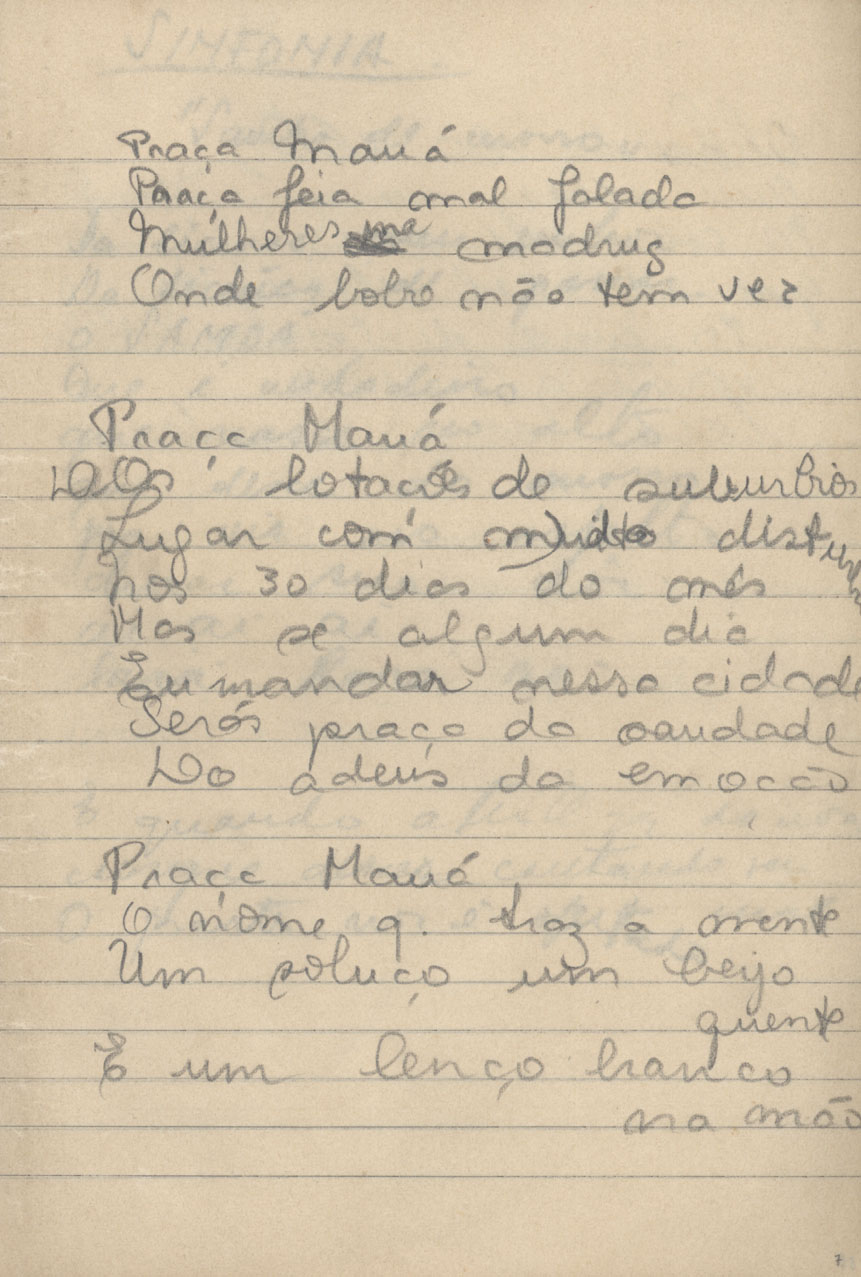 Praça Mauá
Praça feia mal falada
Mulheres na madrug
Onde bobo não tem vez
Praça Mauá
Dos lotações de suburbios
Lugar com muitos distur
Nos 30 dias do mês
Mas se algum dia
Eu mandar nessa cidade
Serás praça da saudade
Do adeus da emoção
Praça Mauá
O nome q. traz a mente
Um soluço um beijo
quente
E um lenço branco
na mão
7